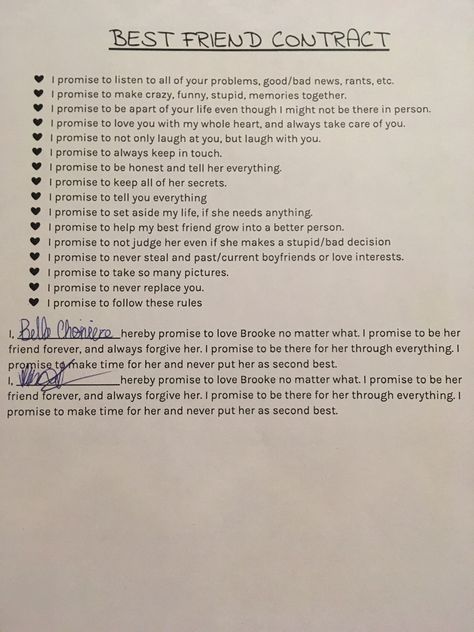 BEST FRIEND CONTRACT
♥ I promise to listen to all of your problems, good/bad news, rants, etc.
♥ I promise to make crazy, funny, stupid, memories together.
♥ I promise to be apart of your life even though I might not be there in person.
♥ I promise to love you with my whole heart, and always take care of you.
♥ I promise to not only laugh at you, but laugh with you.
♥ I promise to always keep in touch.
♥ I promise to be honest and tell her everything.
♥ I promise to keep all of her secrets.
♥ I promise to tell you everything
♥ I promise to set aside my life, if she needs anything.
♥ I promise to help my best friend grow into a better person.
♥ I promise to not judge her even if she makes a stupid/bad decision
♥ I promise to never steal and past/current boyfriends or love interests.
♥ I promise to take so many pictures.
♥ I promise to never replace you.
♥ I promise to follow these rules
I, Belle hereby promise to love Brooke no matter what. I promise to be her
friend forever, and always forgive her. I promise to be there for her through everything. I
promise to make time for her and never put her as second best.
I, hereby promise to love Brooke no matter what. I promise to be her
friend forever, and always forgive her. I promise to be there for her through everything. I
promise to make time for her and never put her as second best.